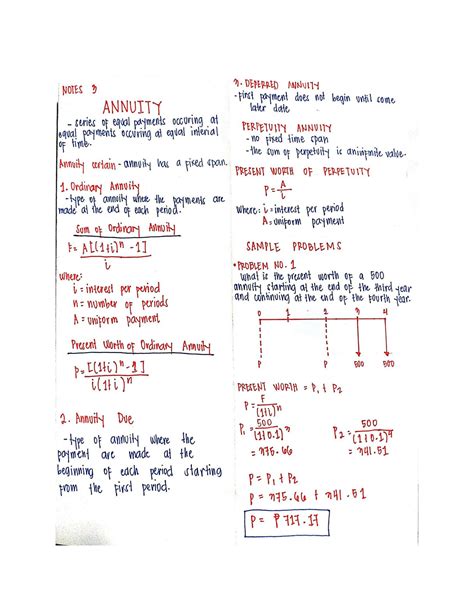 NOTES 3
ANNUITY
- series of equal payments occuring at
equal payments occuring at equal interial
of time.
Annuity certain - annuity has a fixed span.
1. Ordinary Annuity
- type of annuity where the payments are
made at the end of each period.
Sum of Ordinary Annuity
F = A[(1+i)^n - 1]
i
where:
i = interest per period
n = number of periods
A = uniform payment
Present Worth of Ordinary Annuity
P = [(1+i)^n - 1]
i(1+i)^n
2. Annuity Due
- type of annuity where the
payment are made at the
beginning of each period starting
from the first period.
3. DEFERRED ANNUITY
- first payment does not begin until some
later date.
PERPETUITY ANNUITY
- no fixed time span
- the sum of perpetuity is aninifnite value.
PRESENT WORTH OF PERPETUITY
P = A/i
where: i = interest per period
A = uniform payment
SAMPLE PROBLEMS
•PROBLEM NO. 1
What is the present worth of a 500
annuity starting at the end of the third year
and continuing at the end of the fourth year.
0 1 2 3 4
P P 500 500
PRESENT WORTH = P1 + P2
P = F/(1+i)^n
P1 = 500/(1+0.1)^3 P2 = 500/(1+0.1)^4
= 375.66 = 341.51
P = P1 + P2
P = 375.66 + 341.51
P = ₱ 717.17